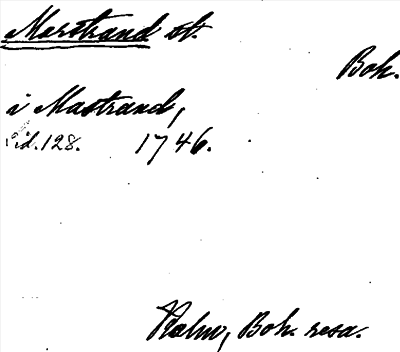 Marstrand st.
Boh.
i Mastrand,
sid. 128. 1746.
Kalm, Boh. resa.